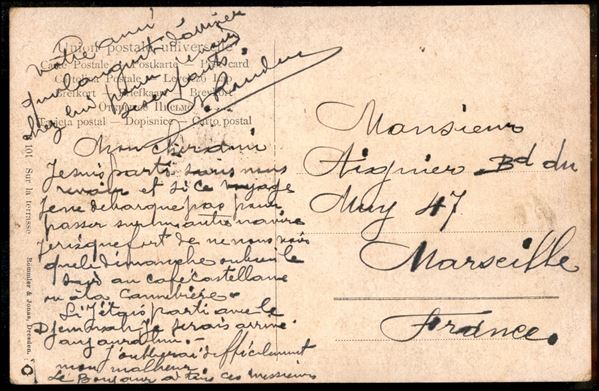 Union postale universelle
Carte Postale Postkarte Postcard
Briefkort Brevkort
Tarjeta postal Dopisnice Carto postal
101 Sur la terrasse
Römmler & Jonas, Dresden.
Votre ami
chez lui pour
Mon cher ami
Je suis parti sans vous
revoir et si ce voyage
je ne débarque pas pour
passer sur un autre navire
je risque fort de ne vous voir
quel dimanche ou lundi le
au café castellane
ou à la Cannebière
Si j'étais parti avec le
Djemnah je serais arrivé
aujourd'hui.
J'oublierai difficilement
mon malheur
Le Bonjour à tous ces messieurs
Monsieur
Aignier Bd du
Muy 47
Marseille
France.